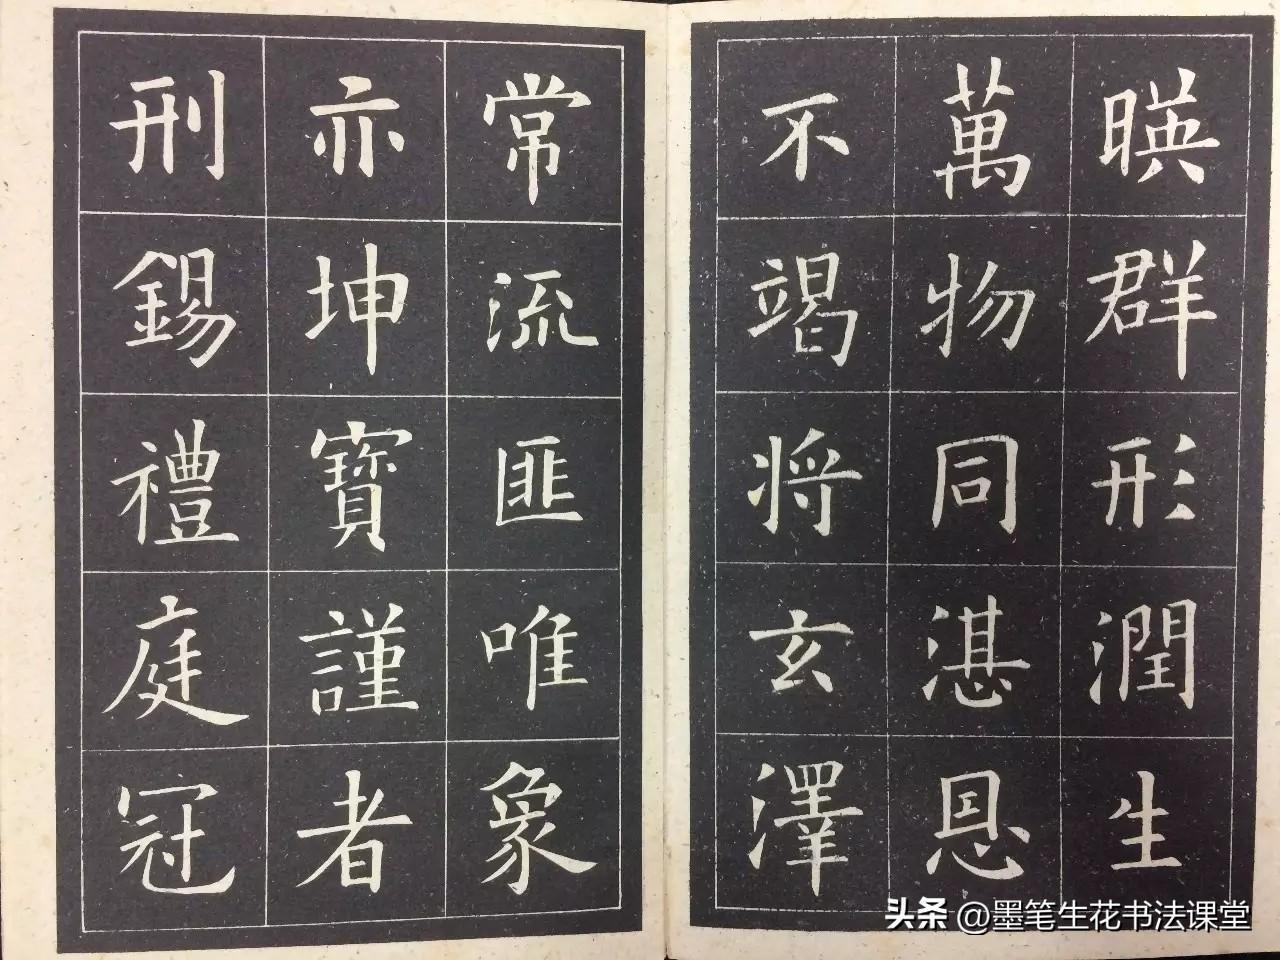 暎群形潤生
萬物同湛恩
不竭将玄澤
常流匪唯象
亦坤寶謹者
刑錫禮庭冠
头条 @墨笔生花书法课堂